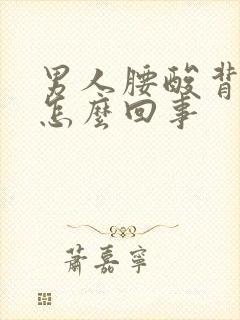 男人腰酸背
怎麼回事
萧嘉寧